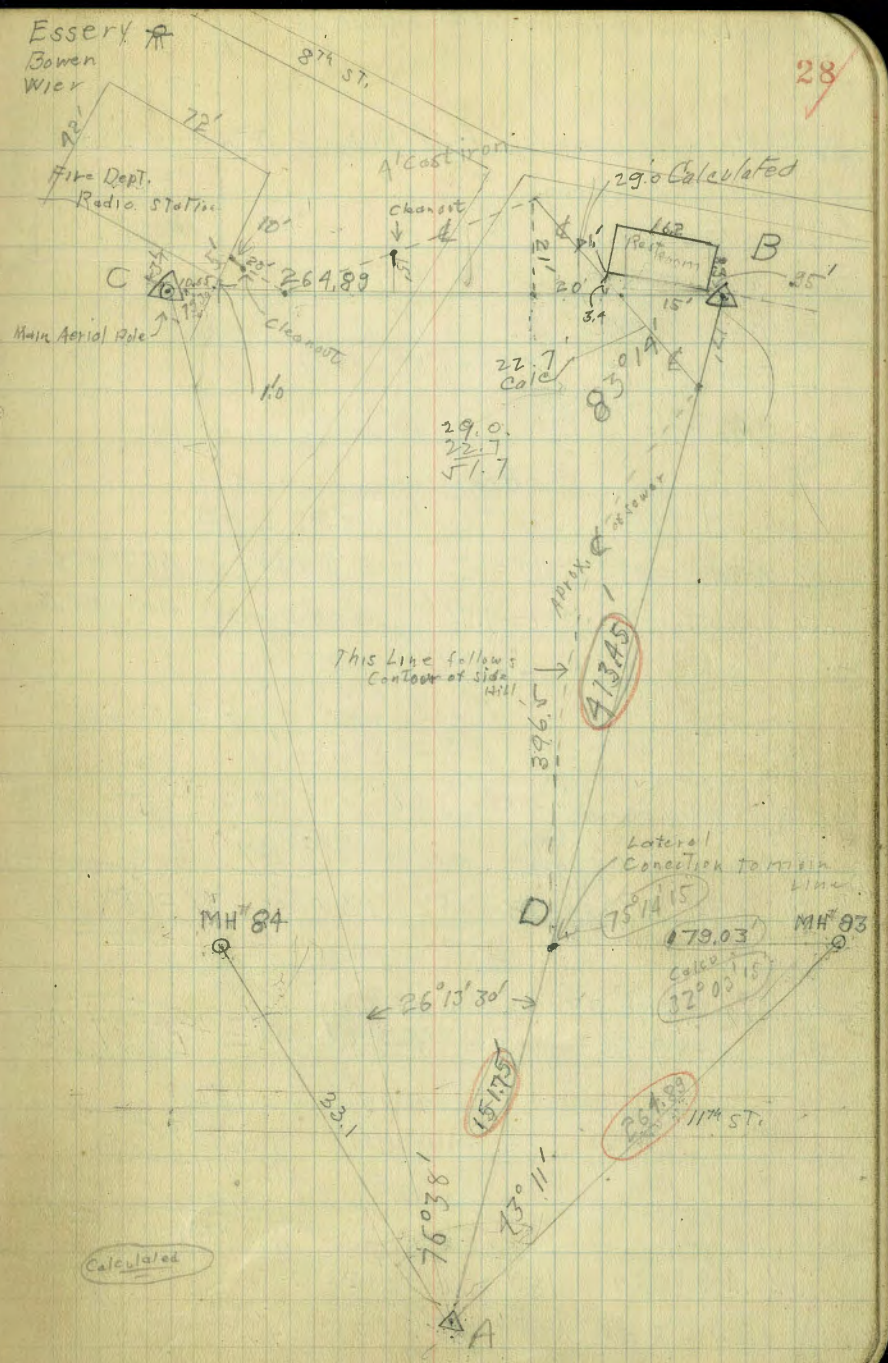 Essery
Bowen
Wier
28
8TH ST.
72'
72'
Fire Dept.
Radio Station
4" Cast iron
29.0 Calculated
Cleanout
10'
20'
162
Restroom
B
95'
C
264.89
21'
20'
15'
3.4
17'
Main Aerial Pole
Cleanout
1.0
22.7'
Calc
83°14'
29.0
22.7
51.7
Aprox. ℄ of sewer
This Line follows
Contour of side
Hill
396.5'
413.45'
Lateral
Conection To main
Line
D
75°14'15
MH#84
179.03'
MH#83
Calcu
32°03'15
26°13'30'
151.75'
33.1
264.89
11TH ST.
76°38'
73°11'
Calculated
A